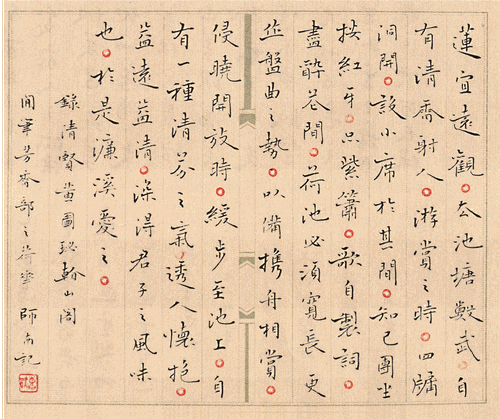 蓮宜遠觀。去池塘數武。自
有清香射人。游賞之時。四牖
洞開。設小席於其間。知己團坐
按紅牙。品紫簫。歌自製詞。
盡醉花間。荷池必須寬長。更
作盤曲之勢。以備携舟相賞。
侵曉開放時。緩步至池上。自
有一種清芬之氣。透人懷抱。
益遠益清。深得君子之風味
也。於是濂溪愛之。
錄清賢黃圖珌看山閣
閒筆芳香部之荷花 師記